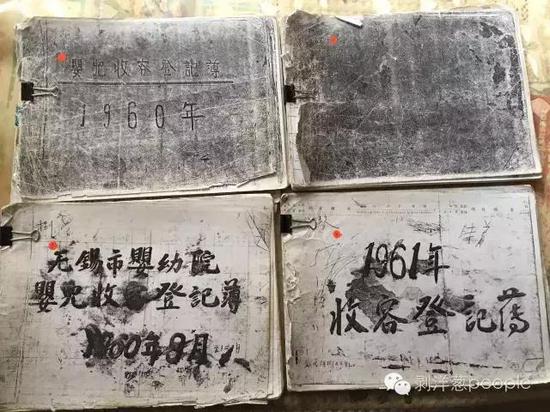 嬰児收容登記薄
1960年
无锡市嬰幼院
嬰児收容登記薄
1960年8月
1961年
收容登記薄
剥洋葱people